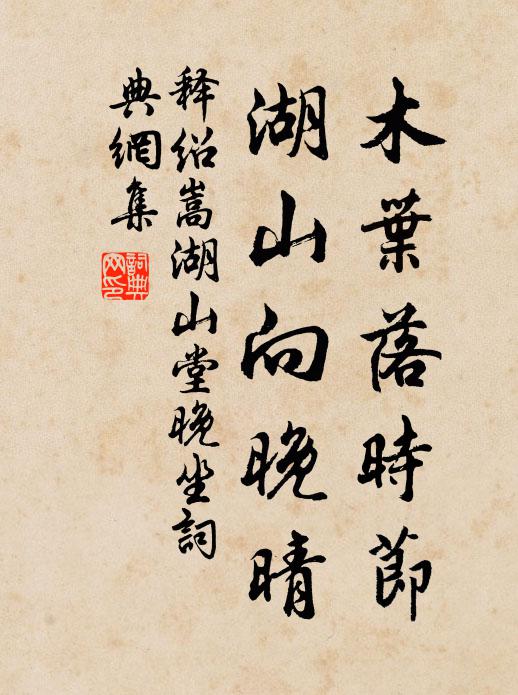 木葉落時節
湖山向晚晴
释绍嵩湖山堂晚坐詞
典網集
詞典網印